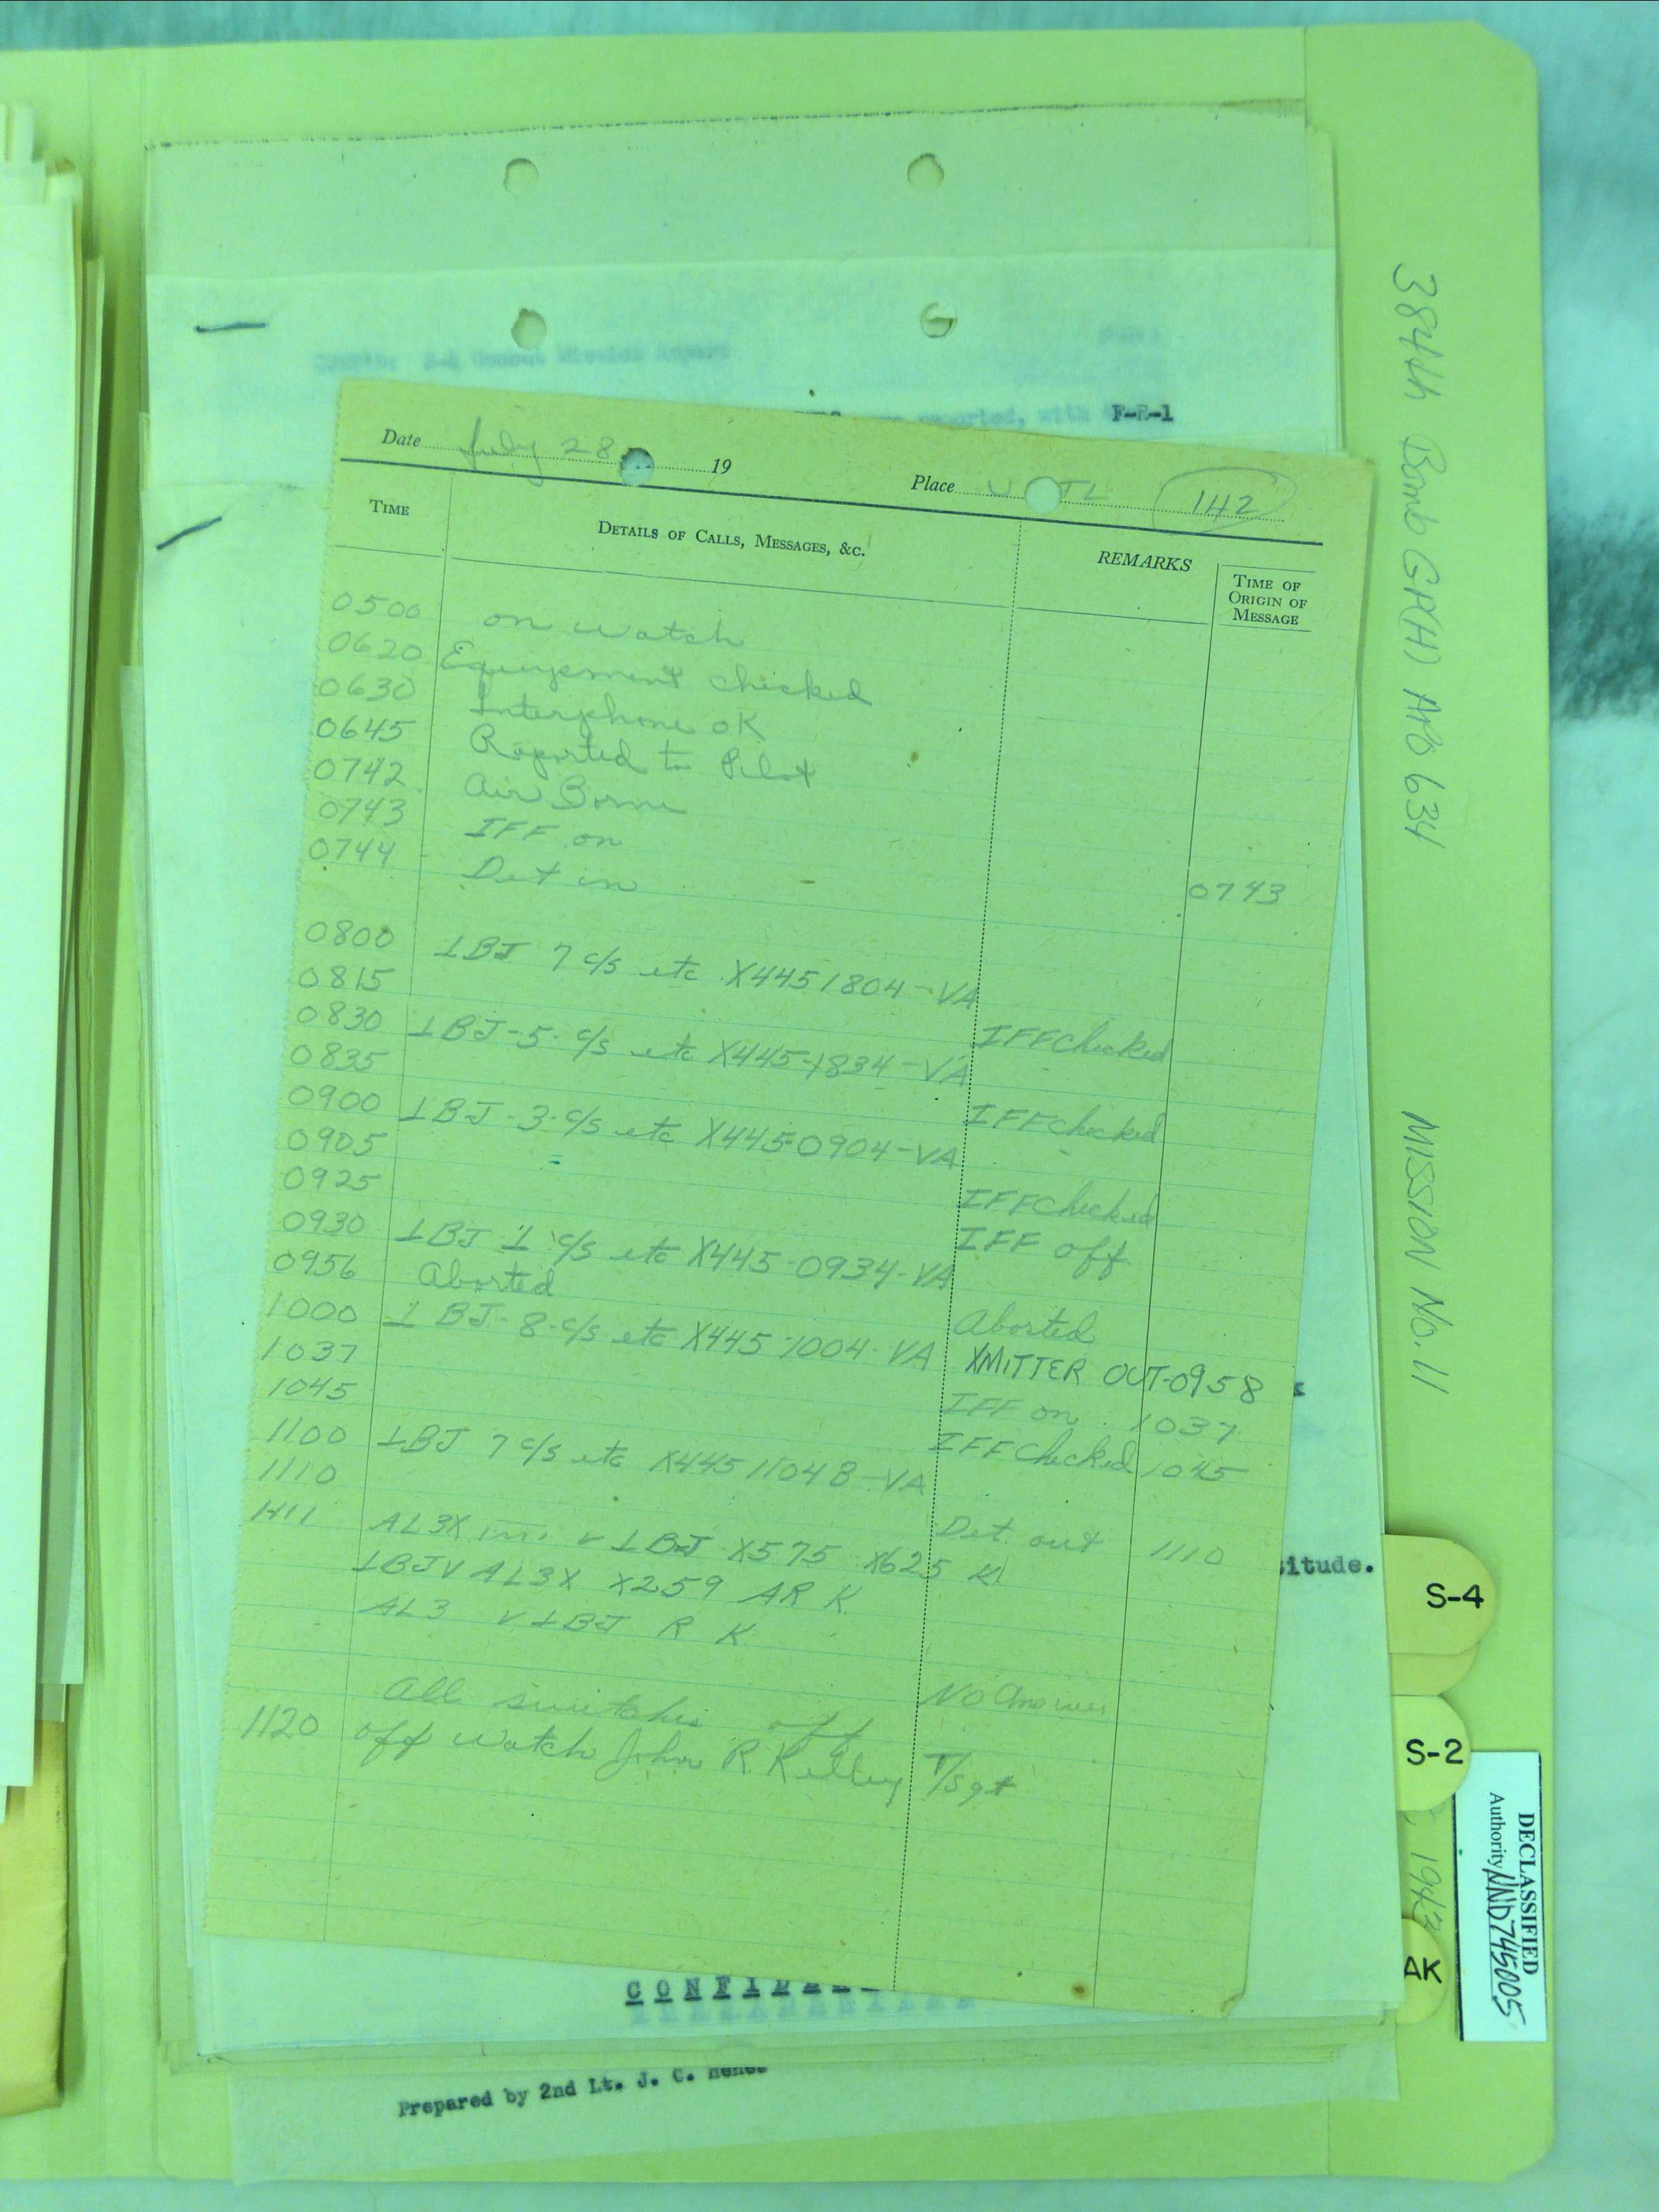 F-R-1
Date July 28 19 Place U TL 142
TIME DETAILS OF CALLS, MESSAGES, &C. REMARKS TIME OF ORIGIN OF MESSAGE
0500 on watch
0620 Equipement checked
0630 Interphone OK
0645 Reported to Pilot
0742 Air Borne
0743 IFF on
0744 Det in 0743
0800 1BJ 7 c/s etc X445 1804-VA
0815 IFF checked
0830 1BJ-5-c/s etc X445-1834-VA
0835 IFF checked
0900 1BJ-3-c/s etc X445-0904-VA
0905 IFF checked
0925 IFF off
0930 1BJ 1 c/s etc X445-0934-VA
0956 Aborted Aborted
1000 1BJ-8-c/s etc X445-1004-VA XMITTER OUT-0958
1037 IFF on 1037
1045 IFF checked 1045
1100 1BJ 7 c/s etc X445 1104B-VA
1110 Det. out 1110
1111 AL3X v 1BJ X575 X625 K
1BJ V AL3X X259 AR K
AL3 v 1BJ R K
No Answer
All switches off
1120 off watch John R. Kelley T/Sgt
itude.
Prepared by 2nd Lt. J. C.
384th Bomb GP(H) APO 634 MISSION No. 11
S-4
S-2
, 1943
AK
DECLASSIFIED
Authority NND745005